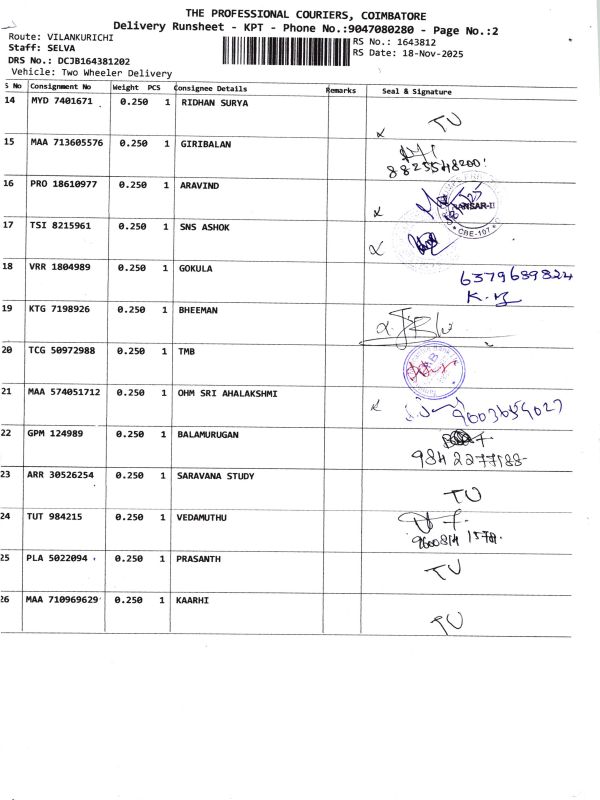 THE PROFESSIONAL COURIERS, COIMBATORE
Delivery Runsheet - KPT - Phone No.:9047080280 - Page No.:2
Route: VILANKURICHI
RS No.: 1643812
Staff: SELVA
RS Date: 18-Nov-2025
DRS No.: DCJB164381202
Vehicle: Two Wheeler Delivery
S No Consignment No Weight PCS Consignee Details Remarks Seal & Signature
14 MYD 7401671 0.250 1 RIDHAN SURYA TU
15 MAA 713605576 0.250 1 GIRIBALAN
8825548200
16 PRO 18610977 0.250 1 ARAVIND
CBE-107
17 TSI 8215961 0.250 1 SNS ASHOK
18 VRR 1804989 0.250 1 GOKULA 6379689824
19 KTG 7198926 0.250 1 BHEEMAN
20 TCG 50972988 0.250 1 TMB
21 MAA 574051712 0.250 1 OHM SRI AHALAKSHMI 9603659027
22 GPM 124989 0.250 1 BALAMURUGAN
9842277188
23 ARR 30526254 0.250 1 SARAVANA STUDY TU
24 TUT 984215 0.250 1 VEDAMUTHU
25 PLA 5022094 0.250 1 PRASANTH TU
26 MAA 710969629 0.250 1 KAARHI TU